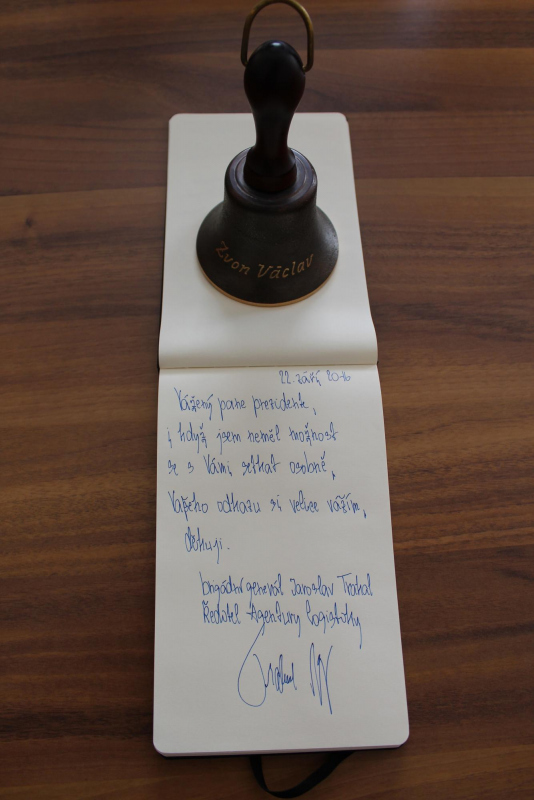 Zvon Václav
22. září 2016
Vážený pane prezidente,
i když jsem neměl možnost
se s Vámi setkat osobně,
Vašeho odkazu si velice vážím,
děkuji.
brigádní generál Jaroslav Trakal
Ředitel Agentury logistiky